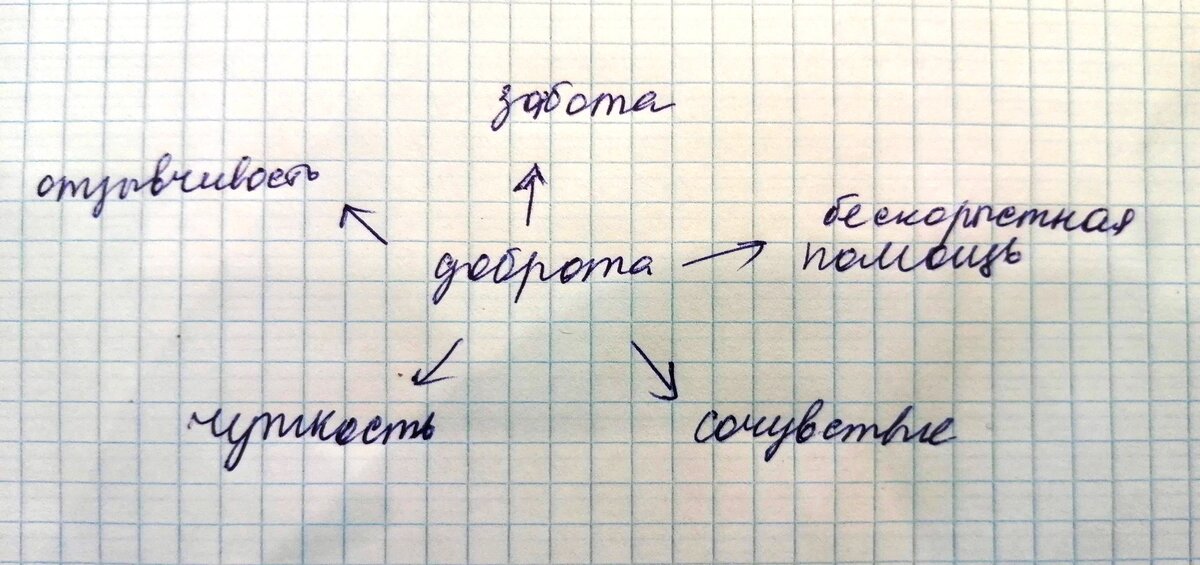 забота
отзывчивость
бескорыстная
помощь
доброта
чуткость
сочувствие